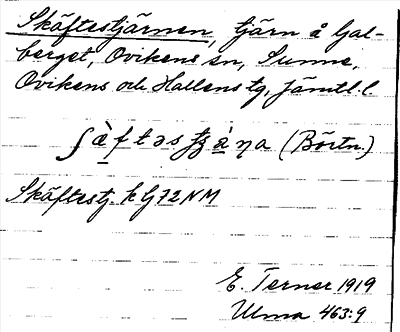 Skäftestjärnen, tjärn å Gal-
berget, Ovikens sn, Sunne,
Ovikens och Hallens tg, Jämtl. l.
ʃäftəs tʒäṇa (Börtn.)
Skäftestj. k Gj 72 NM
E. Terner 1919
Ulma 463:9